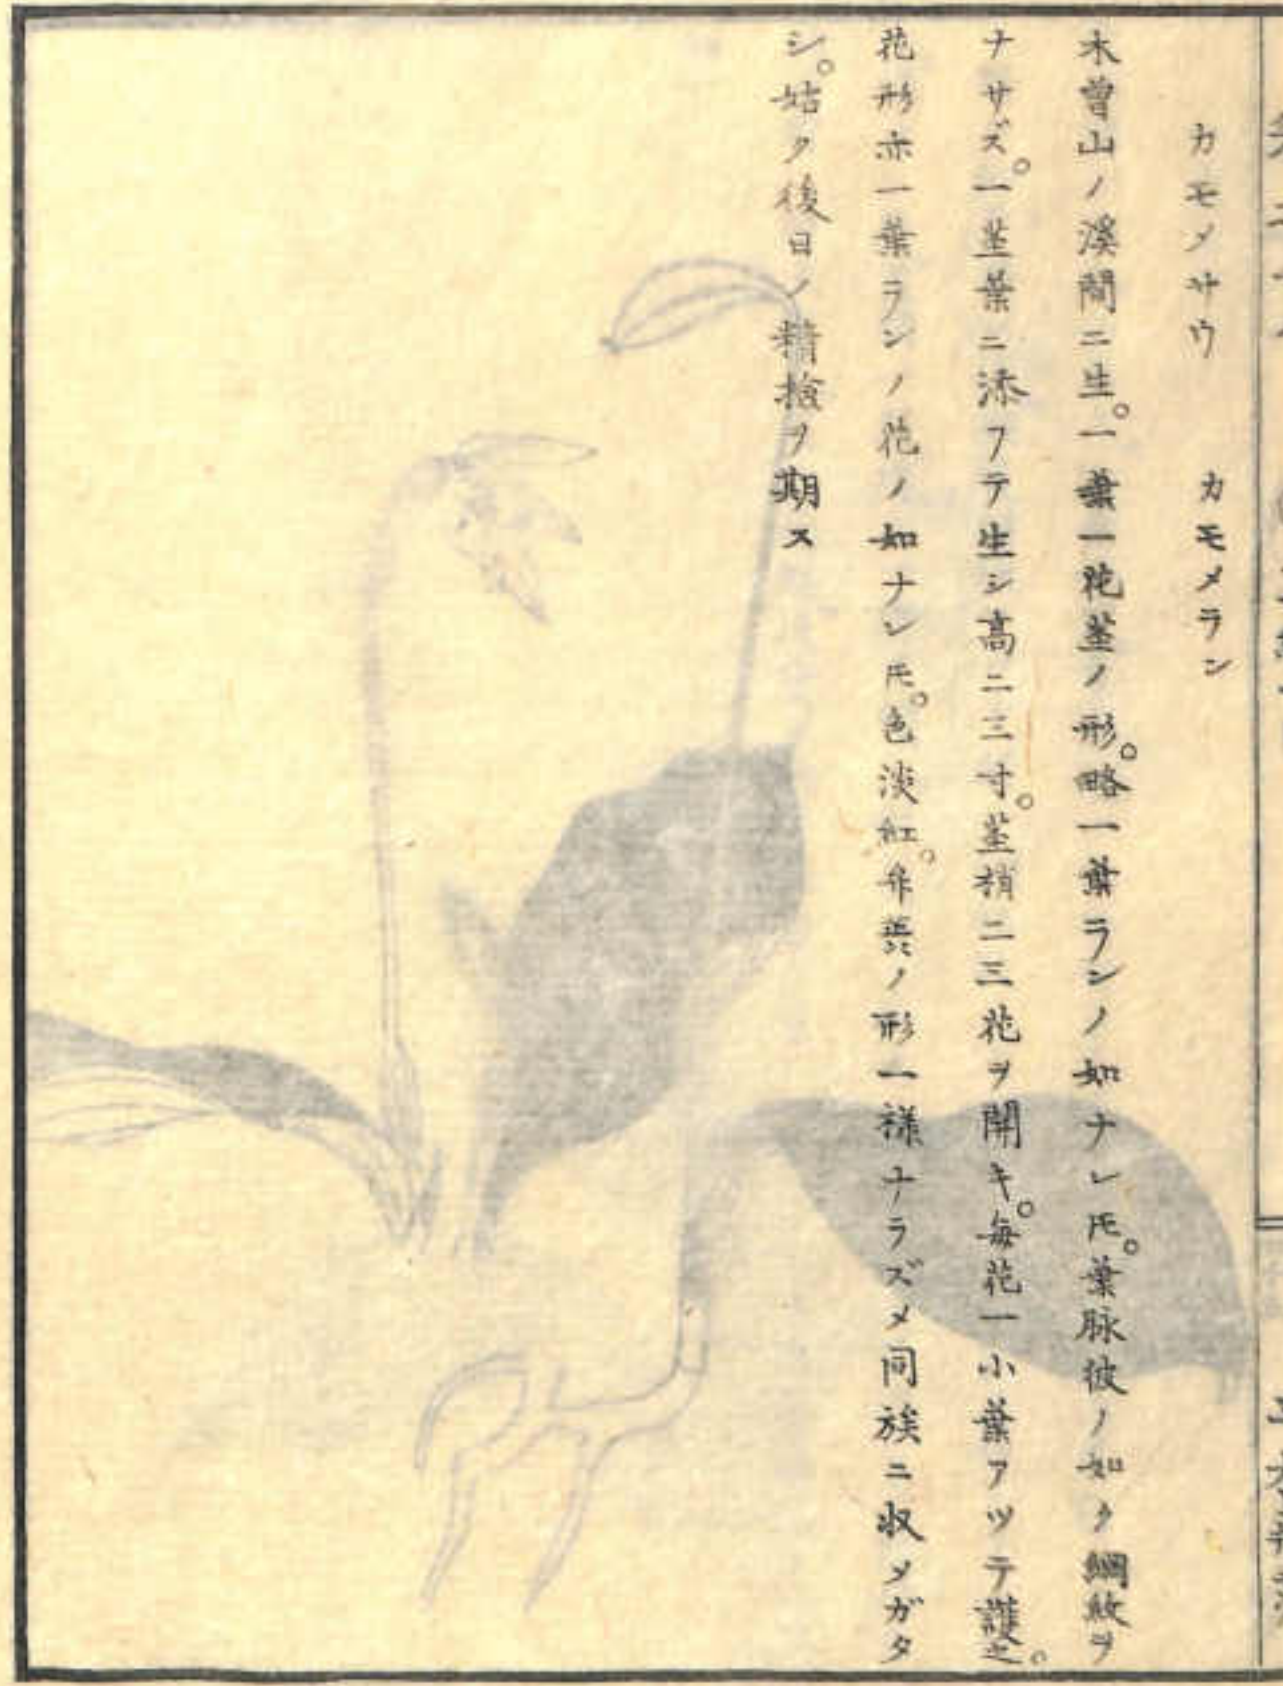 カモメサウ　カモメラン
木曽山ノ渓間ニ生。一葉一花茎ノ形。略一葉ランノ如ナレ𪜈。葉脉彼ノ如ク網紋ヲ
ナサズ。一茎葉ニ添フテ生シ高二三寸。茎梢二三花ヲ開キ。毎花一小葉アツテ護之。
花形亦一葉ランノ花ノ如ナレ𪜈。色淡紅。弁蕚ノ形一様ナラズメ同族ニ収メガタ
シ。姑ク後日ノ精撿ヲ期ス